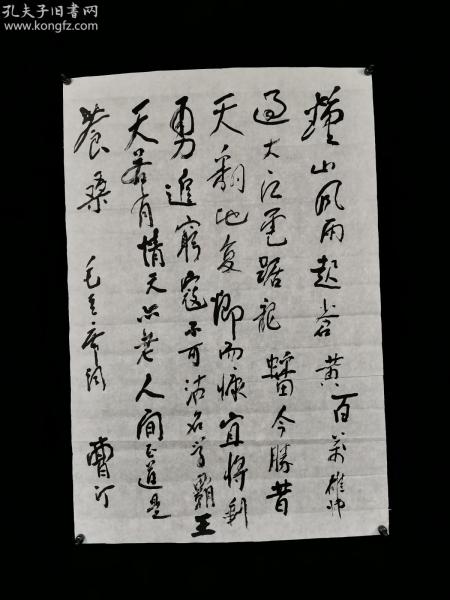 孔夫子旧书网
www.kongfz.com
鐘山风雨起苍黄百萬雄师
过大江虎踞龍蟠今勝昔
天翻地复慨而慷宜将剩
勇追窮寇不可沽名学霸王
天若有情天亦老人间正道是
苍桑 毛主席词 曹汀